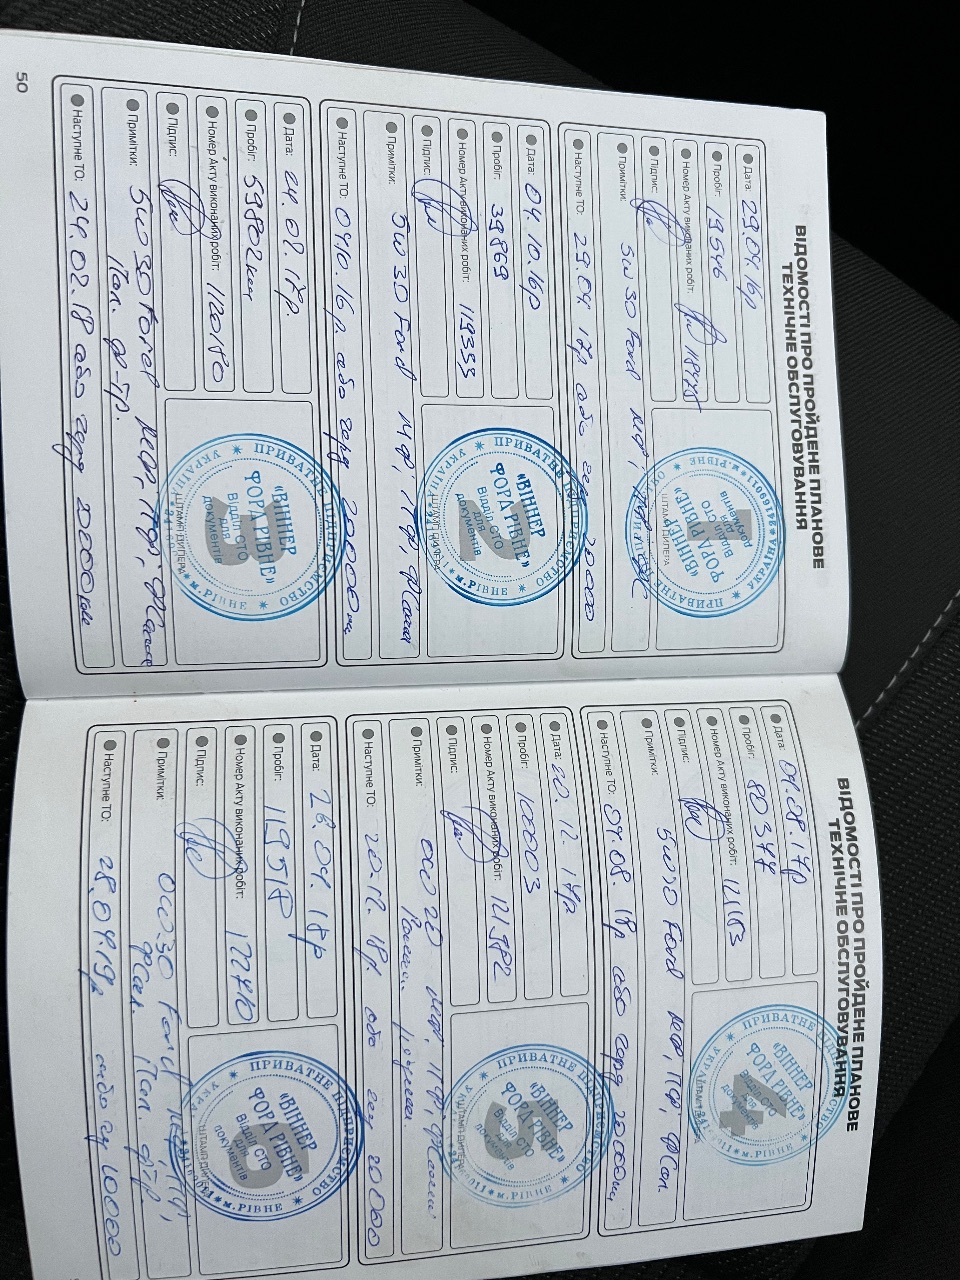 ВІДОМОСТІ ПРО ПРОЙДЕНЕ ПЛАНОВЕ
ТЕХНІЧНЕ ОБСЛУГОВУВАННЯ
Дата: 29.04.16р
Пробіг: 19546
Номер Акту виконаних робіт:
Підпис:
Примітки: 5w30 Ford
Наступне ТО: 29.04.17р або 20000
ПРИВАТНЕ
УКРАЇНА
«ВІННЕР
ФОРД РІВНЕ»
Відділ СТО
для
документів
м.РІВНЕ
1
ШТАМП ДИЛЕРА
Дата: 04.10.16р
Пробіг: 39869
Номер Акту виконаних робіт: 119353
Підпис:
Примітки: 5w30 Ford
Наступне ТО: або 20000
ПРИВАТНЕ ПІДПРИЄМСТВО
УКРАЇНА
«ВІННЕР
ФОРД РІВНЕ»
Відділ СТО
для
документів
м.РІВНЕ
2
ШТАМП ДИЛЕРА
Дата: 24.02.17р.
Пробіг: 59802км
Номер Акту виконаних робіт: 120180
Підпис:
Примітки: 5w30 Ford
Пол. ф-тр.
Наступне ТО: 24.02.18 або 20000км
ПРИВАТНЕ ПІДПРИЄМСТВО
УКРАЇНА
«ВІННЕР
ФОРД РІВНЕ»
Відділ СТО
для
документів
м.РІВНЕ
3
ШТАМП ДИЛЕРА
50
ВІДОМОСТІ ПРО ПРОЙДЕНЕ ПЛАНОВЕ
ТЕХНІЧНЕ ОБСЛУГОВУВАННЯ
Дата: 04.08.17р
Пробіг: 80344
Номер Акту виконаних робіт: 121163
Підпис:
Примітки: 5w30 Ford
Наступне ТО: 04.08.18р або 20000км
ПРИВАТНЕ ПІДПРИЄМСТВО
«ВІННЕР
ФОРД РІВНЕ»
Відділ СТО
для
документів
м.РІВНЕ
4
Дата: 20.12.17р
Пробіг: 100003
Номер Акту виконаних робіт: 121982
Підпис:
Примітки: 0W20
Наступне ТО: 20.12.18р або 20000
ПРИВАТНЕ ПІДПРИЄМСТВО
«ВІННЕР
ФОРД РІВНЕ»
Відділ СТО
для
документів
м.РІВНЕ
5
Дата: 28.04.18р
Пробіг: 119518
Номер Акту виконаних робіт: 122710
Підпис:
Примітки: 0w30 Ford
Пол. фітр
Наступне ТО: 28.04.19р або
ПРИВАТНЕ ПІДПРИЄМСТВО
«ВІННЕР
ФОРД РІВНЕ»
Відділ СТО
для
документів
м.РІВНЕ
6
ШТАМП ДИЛЕРА